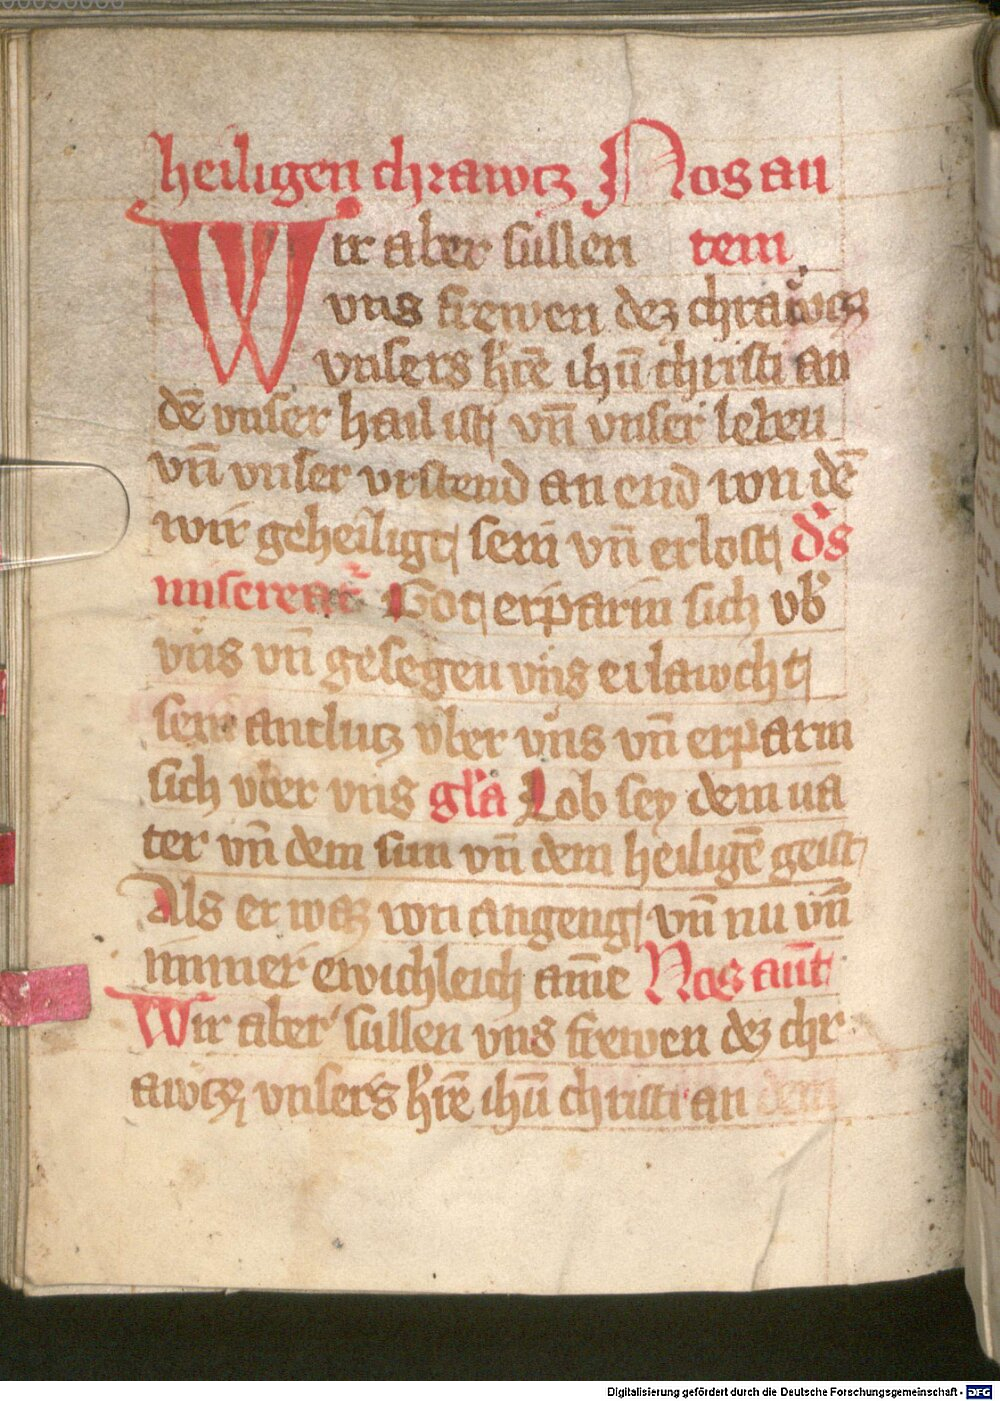 heiligen chrawcz Nos au
Wir aber sullen tem
vns frewen dez chrawcz
vnsers hr̄e ihū christi an
dē vnser hail ist vn̄ vnser leben
vn̄ vnser vrstend an end won dē
wir geheiligt sein vn̄ erlost ds
misereat Got erparm sich vb
vns vn̄ gesegen vns erlawcht
sein antlucz vber vns vn̄ erparm
sich vber vns gla Lob sey dem ua
ter vn̄ dem sun vn̄ dem heiligē geist
Als er waz von angeng vn̄ nu vn̄
immer ewichleich am̄e Nos aūt
Wir aber sullen vns frewen dez chr
awcz vnsers hr̄e ihū christi an dem
Digitalisierung gefördert durch die Deutsche Forschungsgemeinschaft - DFG